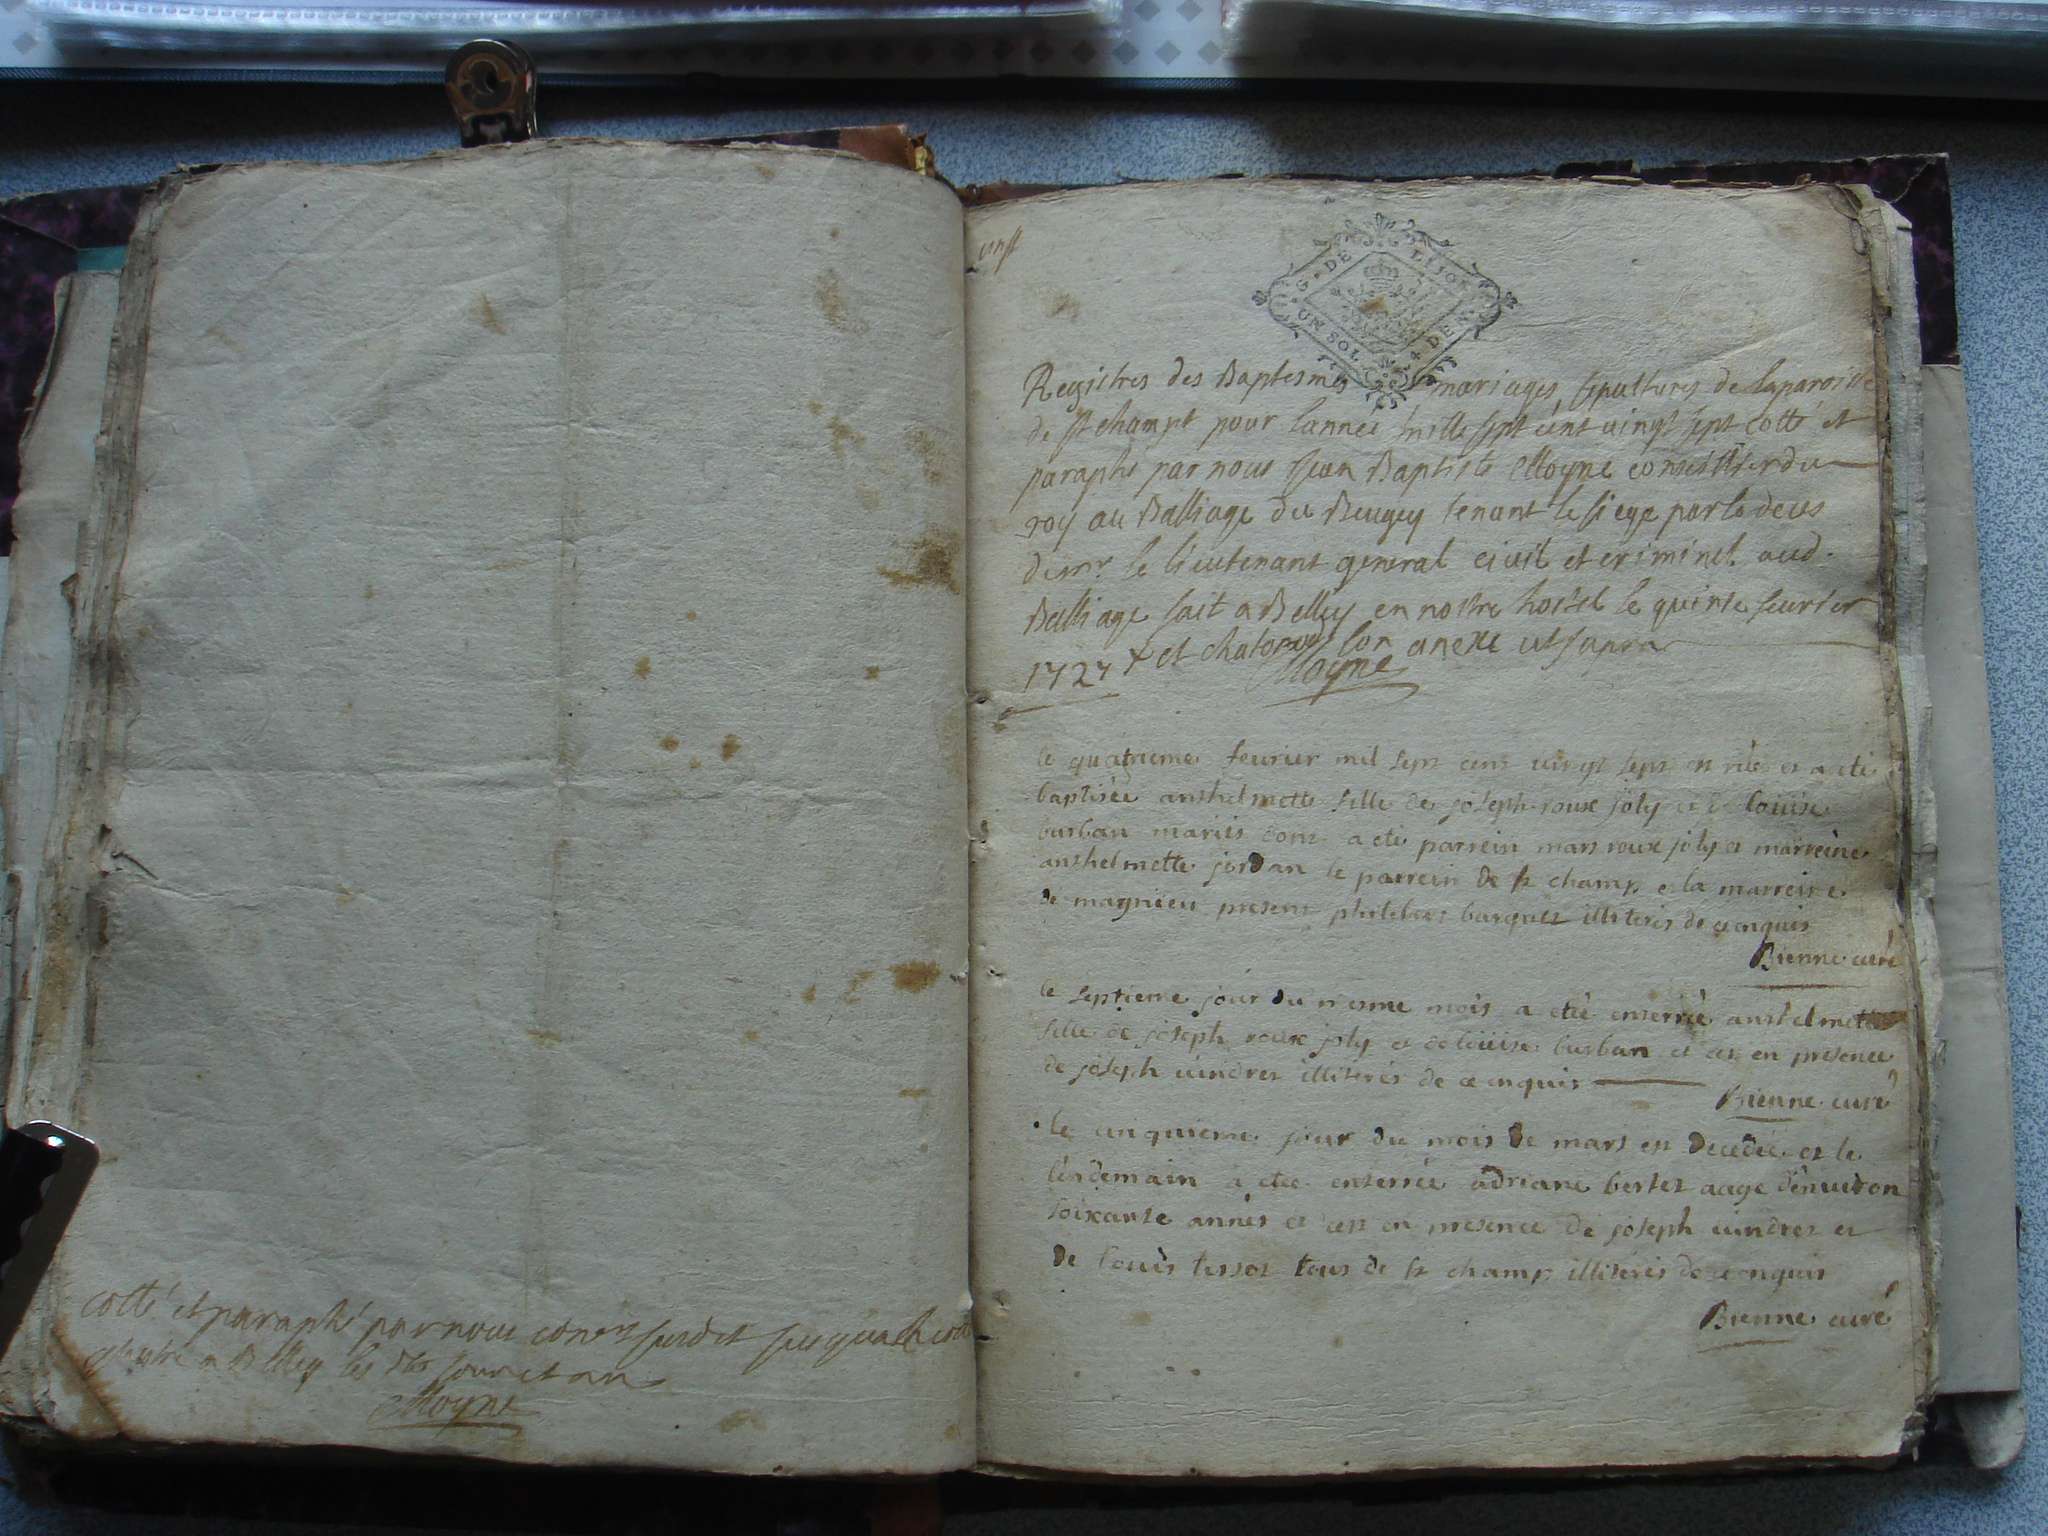 cotté et paraphé par nous consr susdit jusqua
a Belley les dts jour et an
Moyne
G. DE DIJON
UN SOL 4 DEN
Registres des Baptesmes mariages, sepultures de la paroisse
de st champt pour lannee mille sept cent vingt sept cotté et
paraphé par nous Jean Baptiste Moyne conseiller du
roy au Balliage du Beugey tenant le siege par le deces
de mr. le lieutenant general civil et criminel aud.
Balliage fait a Belley en nostre hostel le quinze feurier
1727 et chatonod son anexe ut supra
Moyne
le quatrieme feurier mil sept cent vingt sept est née et a eté
baptisée anthelmette fille de joseph roux joly et de louise
burban mariés dont a eté parrein marc roux joly et marreine
anthelmette jordan le parrein de st champ et la marreine
de magnieu present philibert burquet illiterés de ce enquis
Bienne curé
le septieme jour du mesme mois a eteé enterrée anthelmette
fille de joseph roux joly et de louise burban et cet en presence
de joseph vindret illiterés de ce enquis
Bienne curé
le cinquieme jour du mois de mars est decedée et le
lendemain a eteé enterrée adriane bertet aage denviron
soixante annés et cet en presence de joseph vindret et
de louis tissot tous de st champ illiterés de ce enquis
Bienne curé